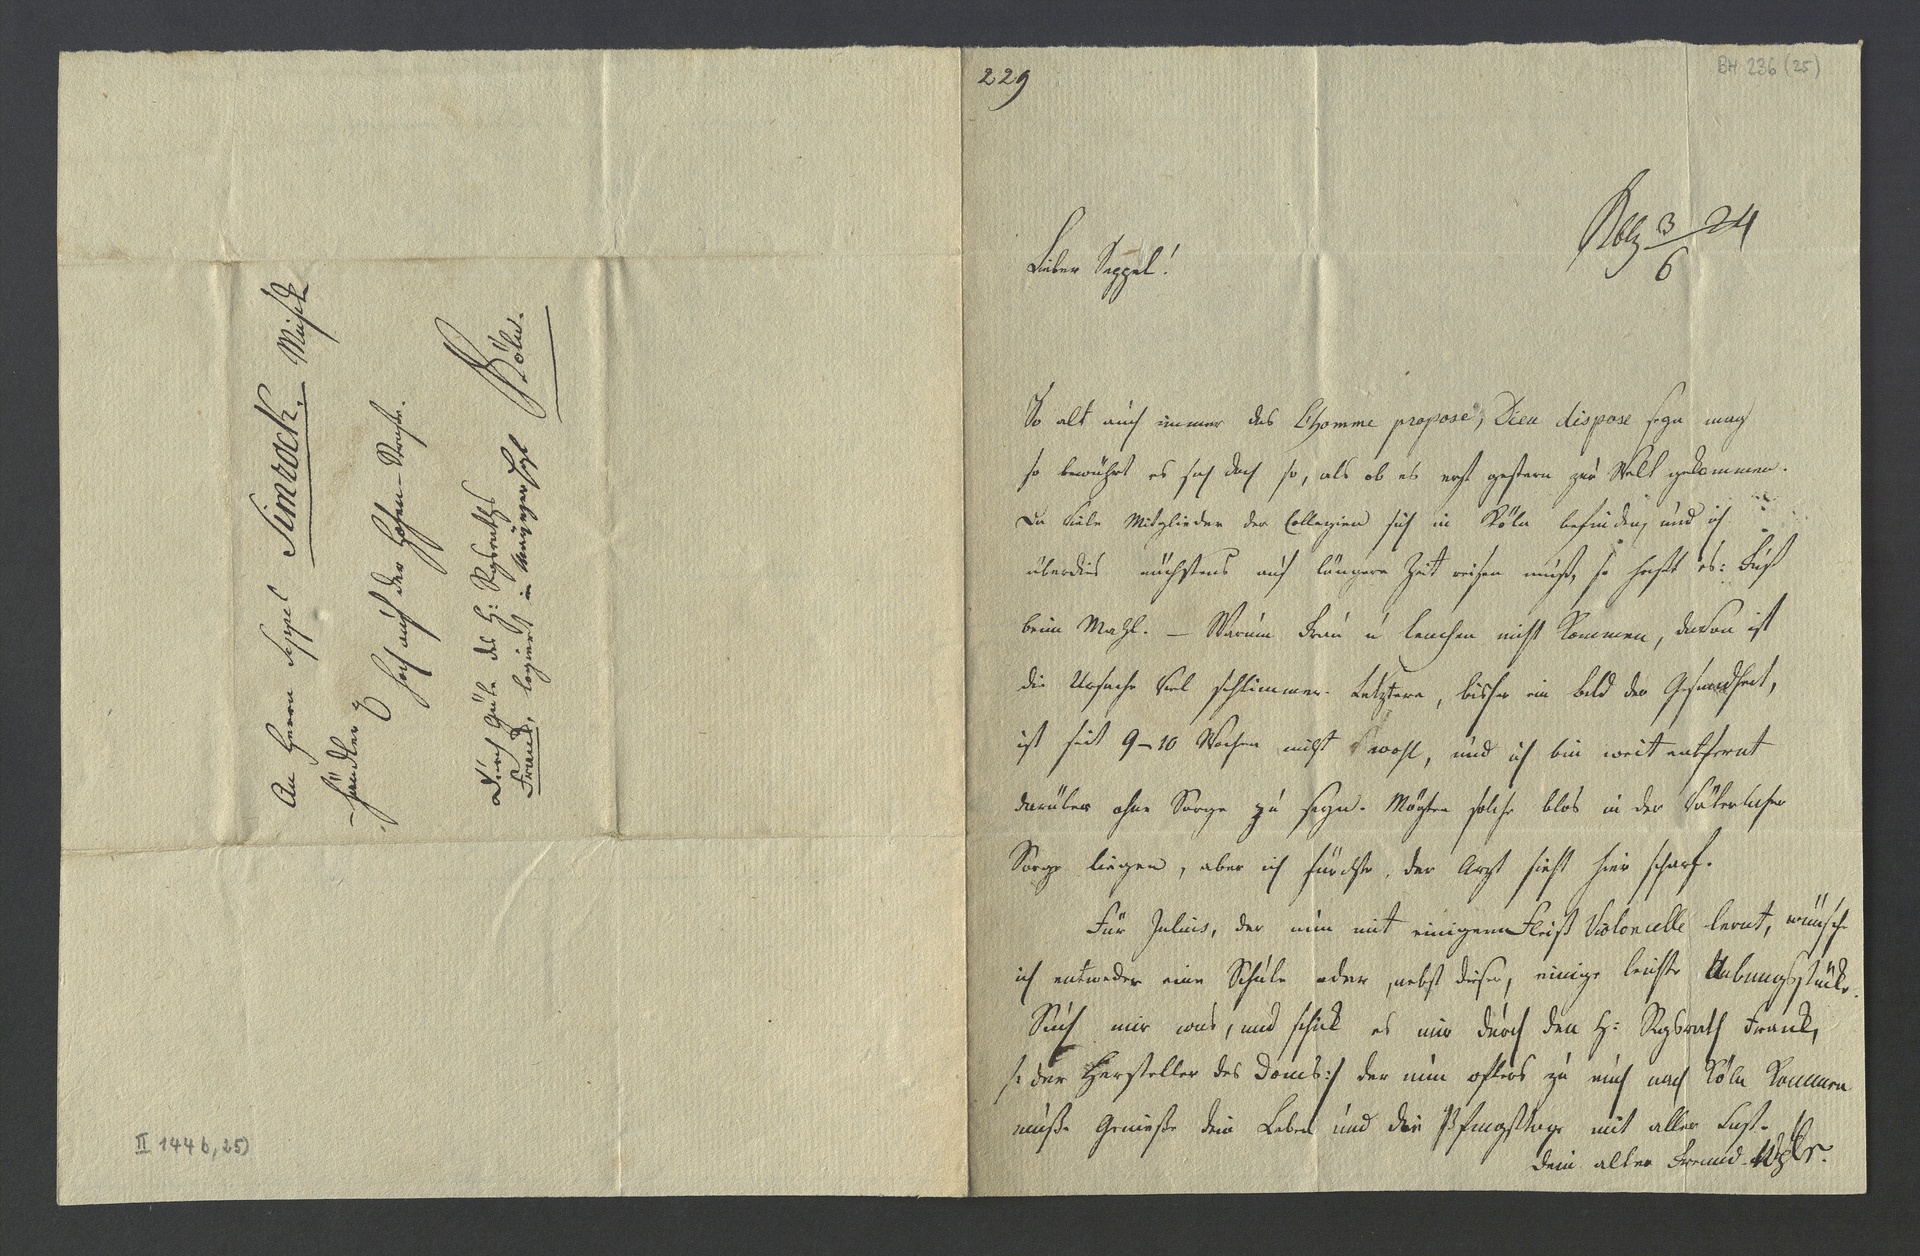 An Herrn Seppel Simrock, Musik
-händler
hoch auf der Hohen-Straße.
Durch Güte des H: Rgsraths
Frank, logiert im
Köln.
II 144 b, 25)
229
BH 236 (25)
Kblz 3/6 24
Lieber Seppel!
So alt auch immer das l'homme propose, Dieu dispose seyn mag
so bewährt es sich doch so, als ob es erst gestern zur Welt gekommen.
Da viele Mitglieder der Collegien sich in Köln befinden, und ich
überdies nächstens auf längere Zeit reisen muß, so heißt es:
beim Mahl. — Warum Frau u Lenchen nicht kommen, davon ist
die Ursache viel schlimmer. Letztere, bisher ein Bild der Gesundheit,
ist seit 9–10 Wochen nicht wohl, und ich bin weit entfernt
darüber ohne Sorge zu seyn. Mögten solche blos in der väterlichen
Sorge liegen, aber ich fürchte, der Arzt sieht hier scharf.
Für Julius, der nun mit einigem Fleiß Violoncelle lernt, wünsche
ich entweder eine Schule oder, nebst dieser, einige leichte Uebungsstücke.
Such mir was, und schick es mir durch den H: Rgsrath Frank,
/: der Hersteller des Doms :/ der nun öfters zu euch nach Köln kommen
muß. Genieße dein Leben und die Pfingsttage mit aller Lust.
Dein alter Freund Wglr.